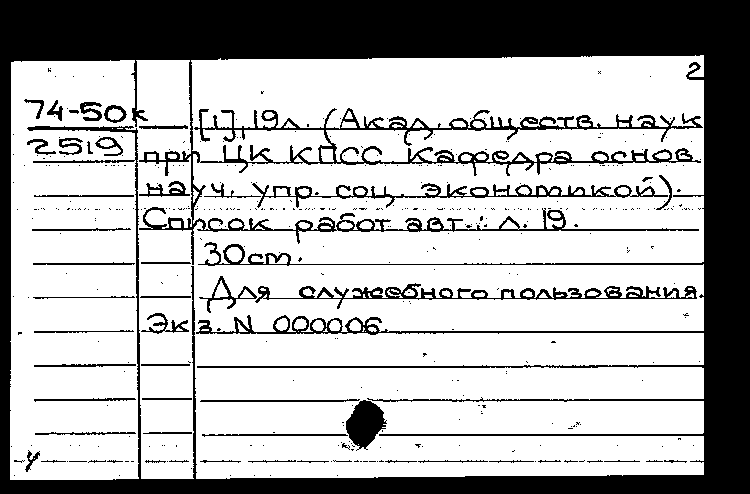 2
74-50к
2519
[1], 19л. (Акад. обществ. наук
при ЦК КПСС Кафедра основ
науч. упр. соц. экономикой).
Список работ авт.: л. 19.
30см.
Для служебного пользования.
Экз. N 000006.